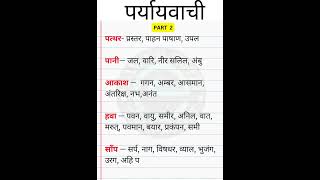 पर्यायवाची
PART 2
पत्थर- प्रस्तर, पाहन पाषाण, उपल
पानी– जल, वारि, नीर सलिल, अंबु
आकाश – गगन, अम्बर, आसमान,
अंतरिक्ष, नभ,अनंत
हवा – पवन, वायु, समीर, अनिल, वात,
मरुत्, पवमान, बयार, प्रकंपन, समी
साँप – सर्प, नाग, विषधर, व्याल, भुजंग,
उरग, अहि प